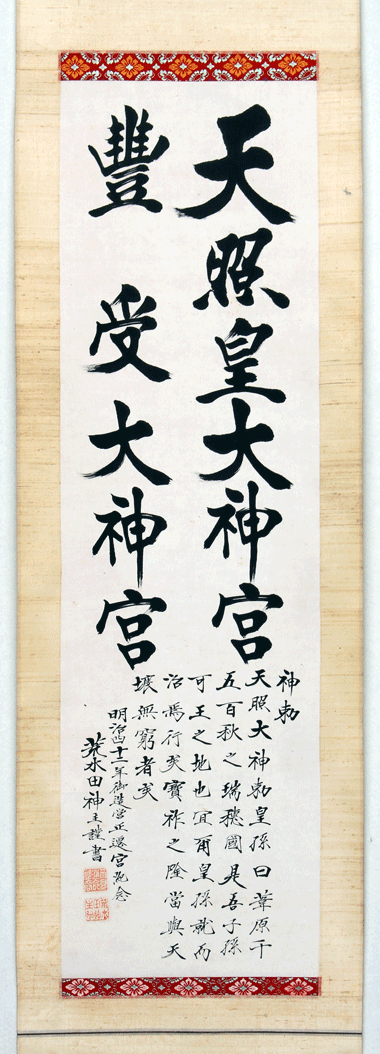 天照皇大神宮
豐受大神宮
神勅
天照大神勅皇孫曰葦原千
五百秋之瑞穂國是吾子孫
可王之地也宜爾皇孫就而
治焉行矣寳祚之隆當與天
壤無窮者矣
明治四十二年御造営正遷宮紀念
荒木田神主謹書